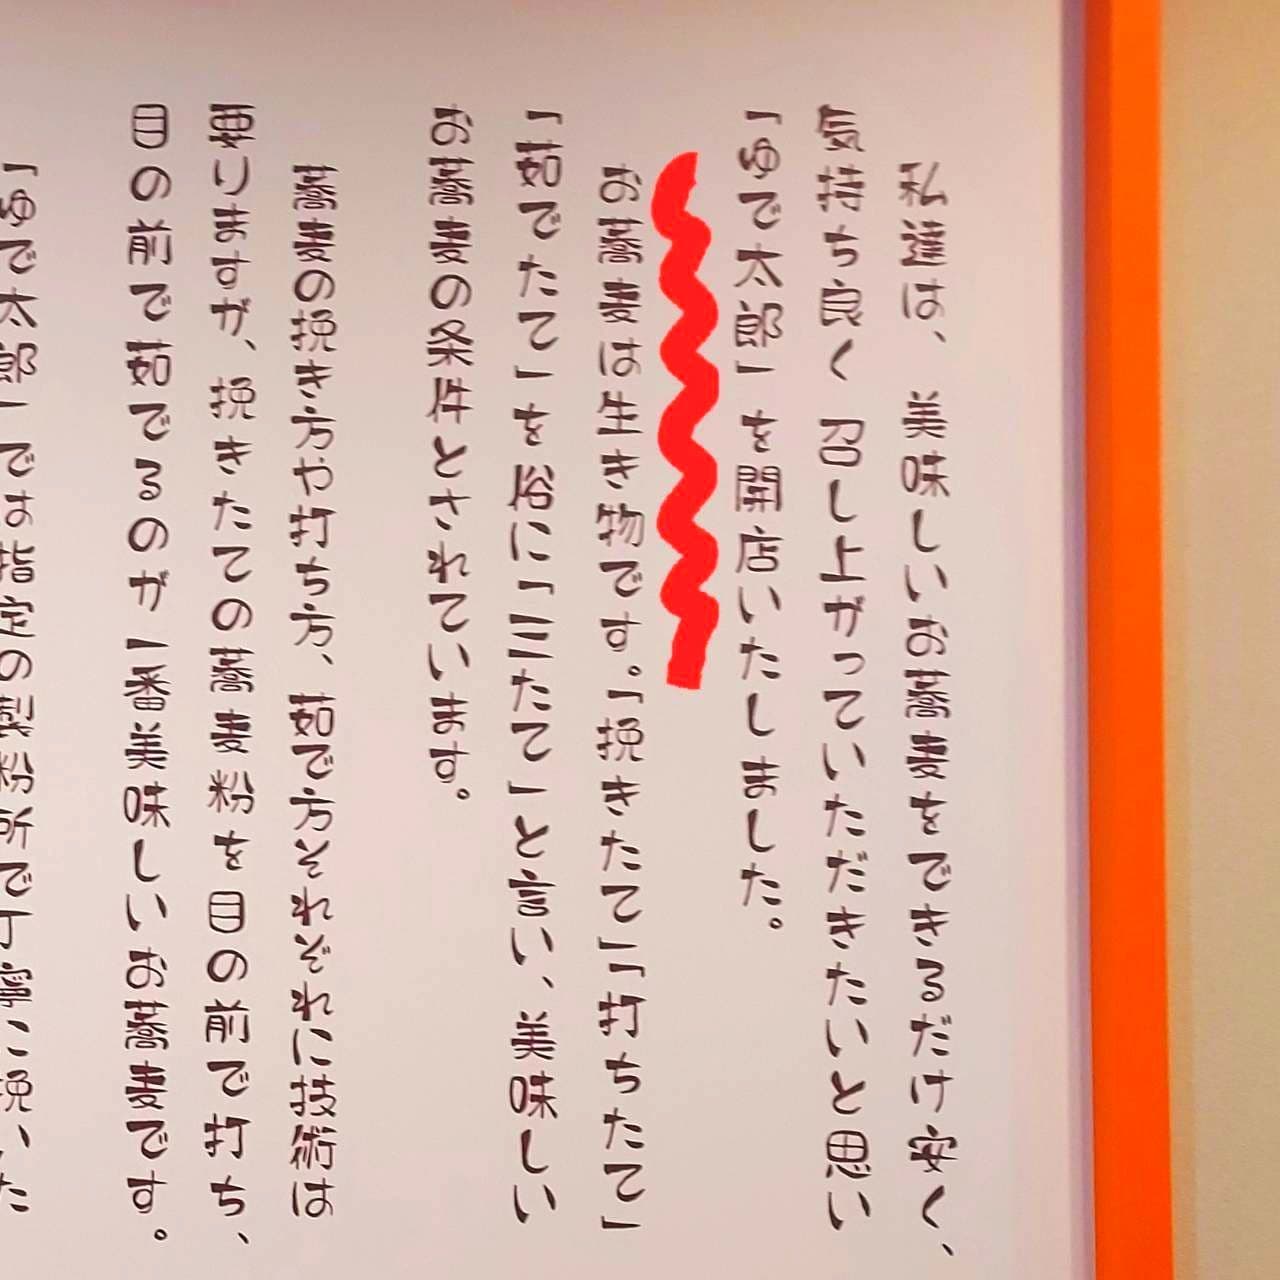 私達は、美味しいお蕎麦をできるだけ安く、
気持ち良く召し上がっていただきたいと思い
「ゆで太郎」を開店いたしました。
お蕎麦は生き物です。「挽きたて」「打ちたて」
「茹でたて」を俗に「三たて」と言い、美味しい
お蕎麦の条件とされています。
蕎麦の挽き方や打ち方、茹で方それぞれに技術は
要りますが、挽きたての蕎麦粉を目の前で打ち、
目の前で茹でるのが一番美味しいお蕎麦です。
「ゆで太郎」では指定の製粉所で丁寧に挽いた